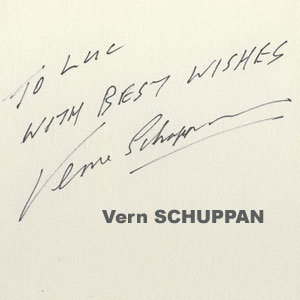 TO LUC
WITH BEST WISHES
Verne Schuppan
Vern SCHUPPAN